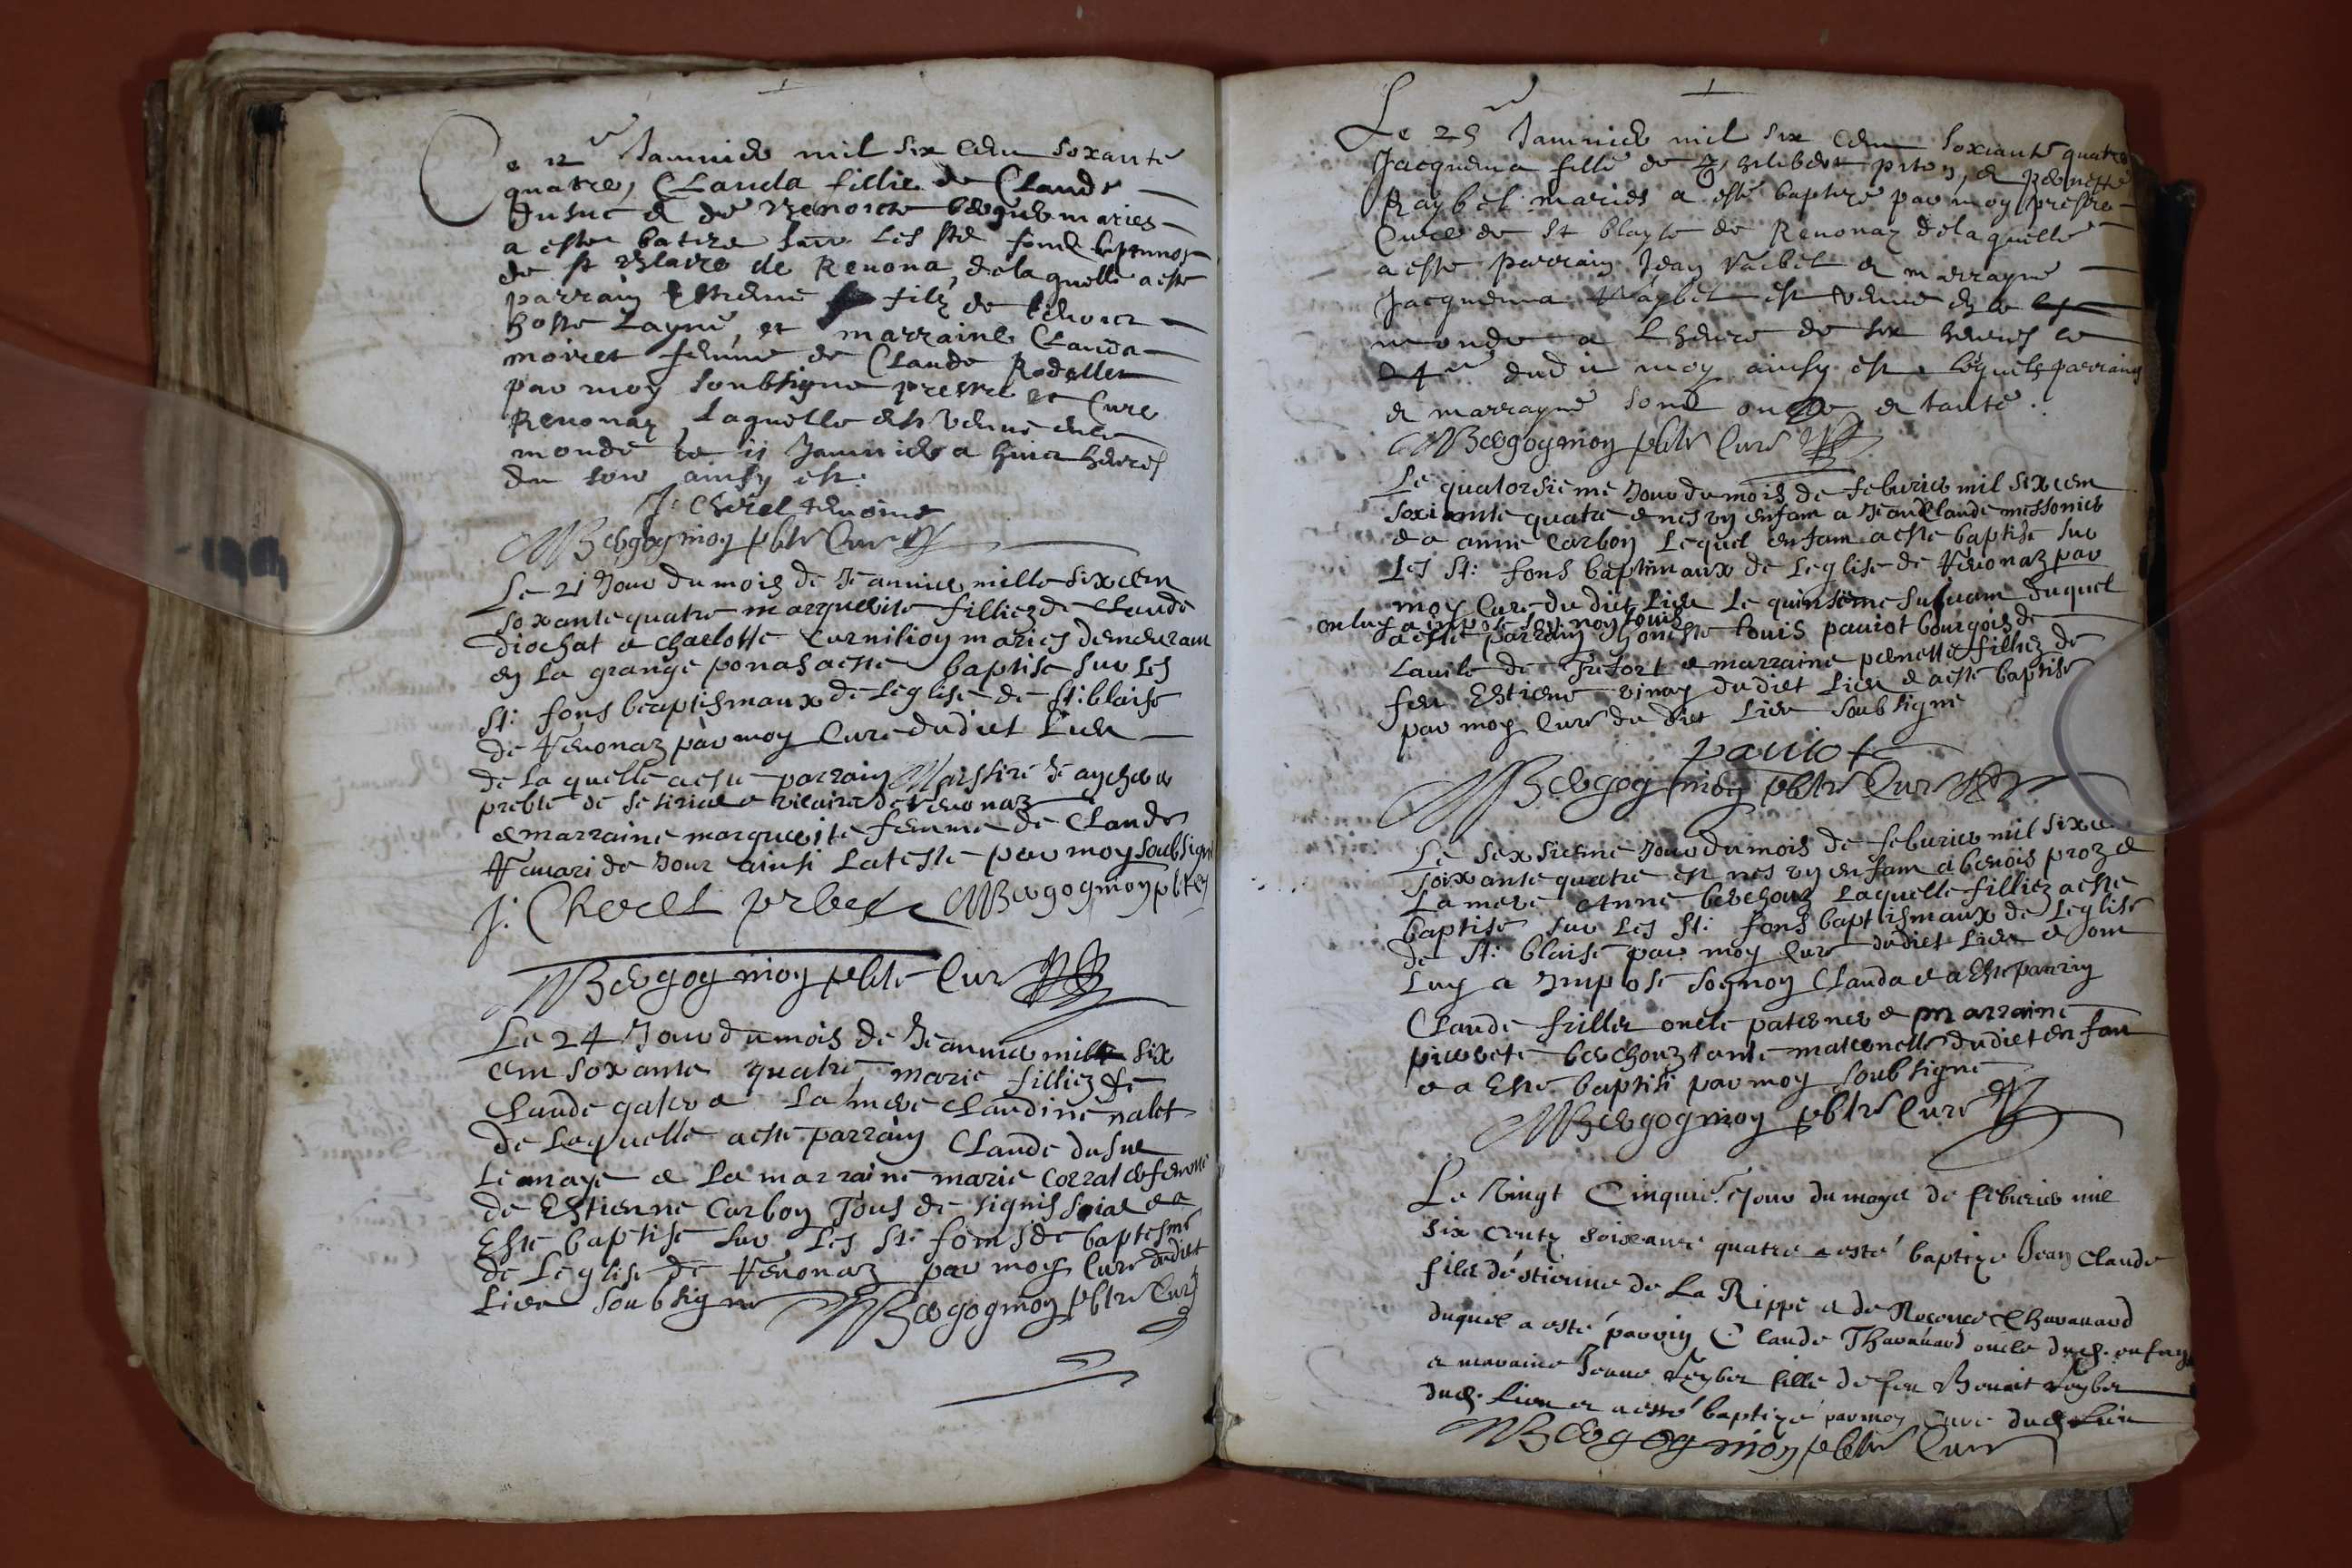 Le 12 Januier mil six cent soxante
quatre, Clauda fillie de Claude
dusuc et de Benoite mariés
a este batize sur les fond baptimos
de st Blaize de Renona, de laquelle a este
parrain filz de
et marraine Clauda
moiret femme de Claude Rodellet
par moy soubsigne prestre et Cure
Renonaz laquelle est venue
monde le 11 Januier a huict heures
du soir ainsy est
J: Cherel
MBergogmoy pbtr Cure
Le 21 Jour du mois de Jeanuier mille six cen
soxante quatre marguerite filliez de Claude
diochat et Charlotte Curnilion mariés demeurant
en la grange ponas a este baptise sur les
st: fons beaptismaux de leglise de st: blaise
de Renonaz par moy Cure dudict Lieu
de la quelle a este parrain
prebte de et vicaire de Renonaz
et marraine marguerite femme de Claude
Jour ainsi par moy soubsigne
J: Cherel prbtre MBergogmoy pbtr
MBergogmoy pbtr Cure
Le 24 Jour du mois de Jeanuier mil six
cen soxante quatre, marie filliez de
Claude et la mere Claudine nalet
de Laquelle a este parrain Claude dusuc
et la marraine marie Corral femme
de Estienne Carbon Tous de signis et a
Este baptise sur les st: fons de baptesme
de Leglise de Renonaz par moy Cure dudict
Lieu Soubsigne MBergogmoy pbtr Cure
Le 25 Januier mil six cen soxiante quatre
Jacquema fille de philibert et pernette
Raybel mariés a esté baptizé par moy prestre
Cure de st blayse de Renonaz de laquelle
a este parrain Jean Raibel et marrayne
Jacquema Raybel est venue en le
monde a Lheure de six heures le
24 dudit moy ainsy est, lequels parrains
et marrayne sont oncle et tante.
MBergogmoy pbtr Cure
Le quatorsieme Jour du mois de feburier mil six cen
soxixante quatre e nes vn enfam a Jean Claude messonier
et a anne Carbon Lequel enfam a este baptise sur
Les st: fons baptimaux de Leglise de Renonaz par
moy Cure du dict Lieu Le quinsieme suiuam duquel
on luy a impose son noy Louis
a este parrain honeste Louis pauiot bourgois de
Lauile de Trefort et marraine pernette filliez de
feu Estiene vinay dudict Lieu et a este baptise
par moy Cure du dict Lieu soubsigne
pauiot
MBergogmoy pbtr Cure
Le sexsiesme Jour du mois de feburier mil six cen
soixante quatre est nes vn enfam a benois proz et
La mere Anne berchouz Laquelle filliez a este
baptise sur les st: fons baptismaux de Leglise
de st: blaise par moy Cure dudict Lieu et om
Luy a Impose sognoy Clauda et a Este parrin
Claude frillet oncle paterner et marraine
pierrete berchouz tante maternelle dudict enfan
et a Este baptisi par moy soubsigne
MBergogmoy pbtr Cure
Le Vingt Cinquie. Jour du moys de feburier mil
six centz soixante quatre a esté baptize Jean Claude
filz déstienne de La Rippe et de Thauanard
duquel a esté parrin Claude Thauanard oncle dud. enfan
et maraine Jeanne Reyber fille de feu Benoit Reyber
dud. Lieu et a esté baptizé par moy Cure dud. Lieu
MBergogmoy pbtr Cure